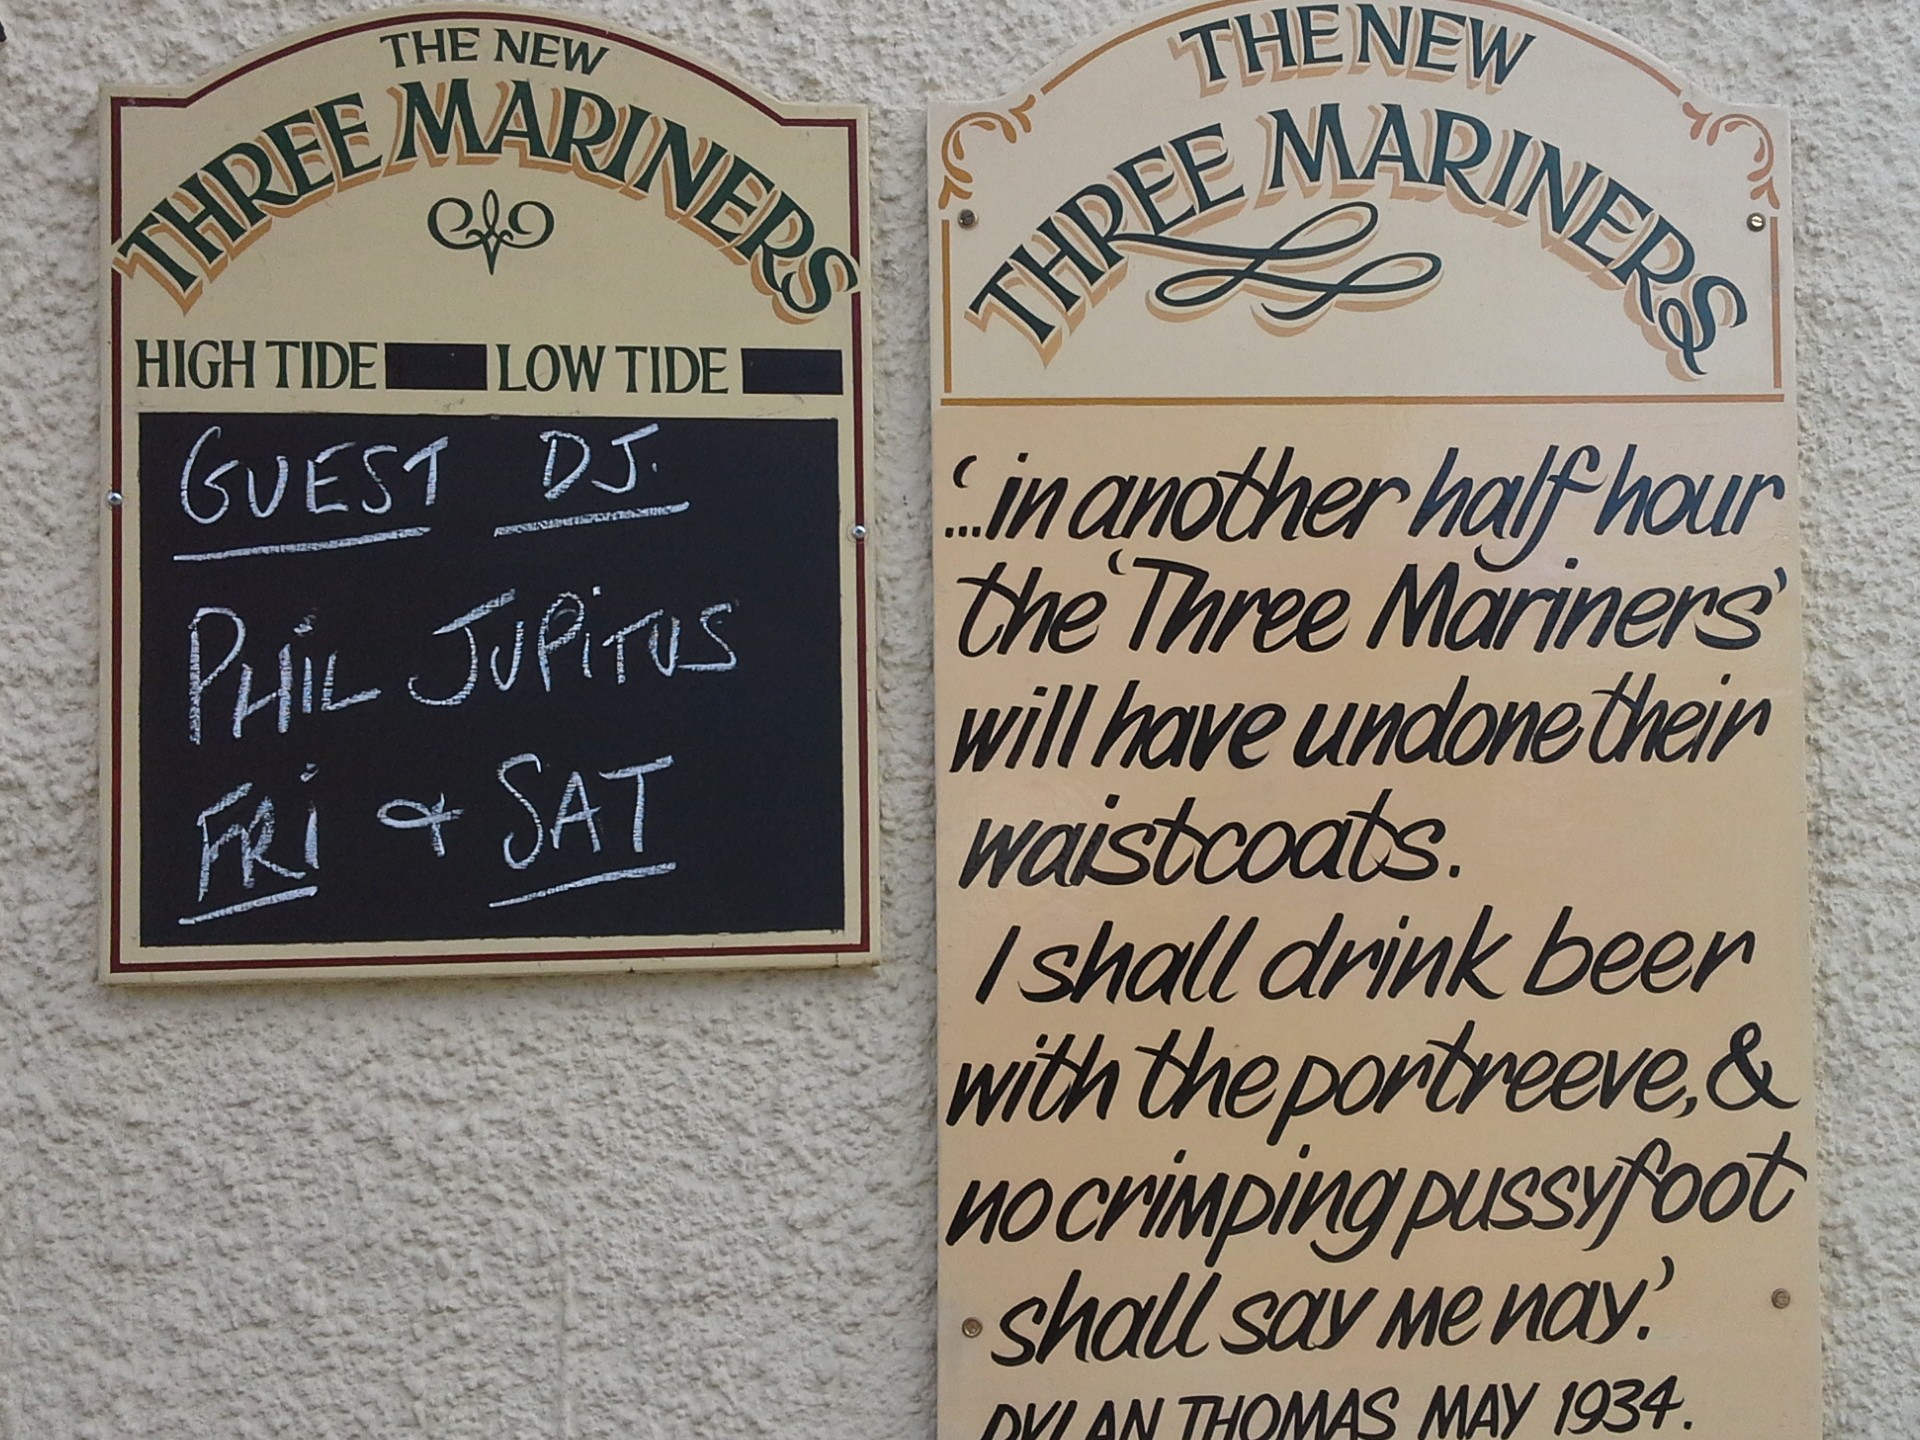 THE NEW
THREE MARINERS
HIGH TIDE LOW TIDE
GUEST DJ.
PHIL JUPITUS
FRI & SAT
THE NEW
THREE MARINERS
‘...in another half hour
the ‘Three Mariners’
will have undone their
waistcoats.
I shall drink beer
with the portreeve, &
no crimping pussyfoot
shall say me nay.’
DYLAN THOMAS MAY 1934.